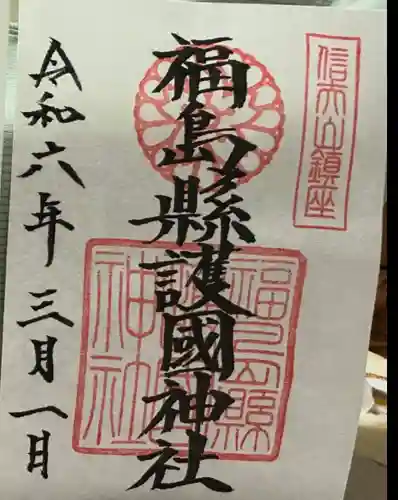 信夫山鎮座
福島縣護國神社
令和六年三月一日
福島縣護國神社